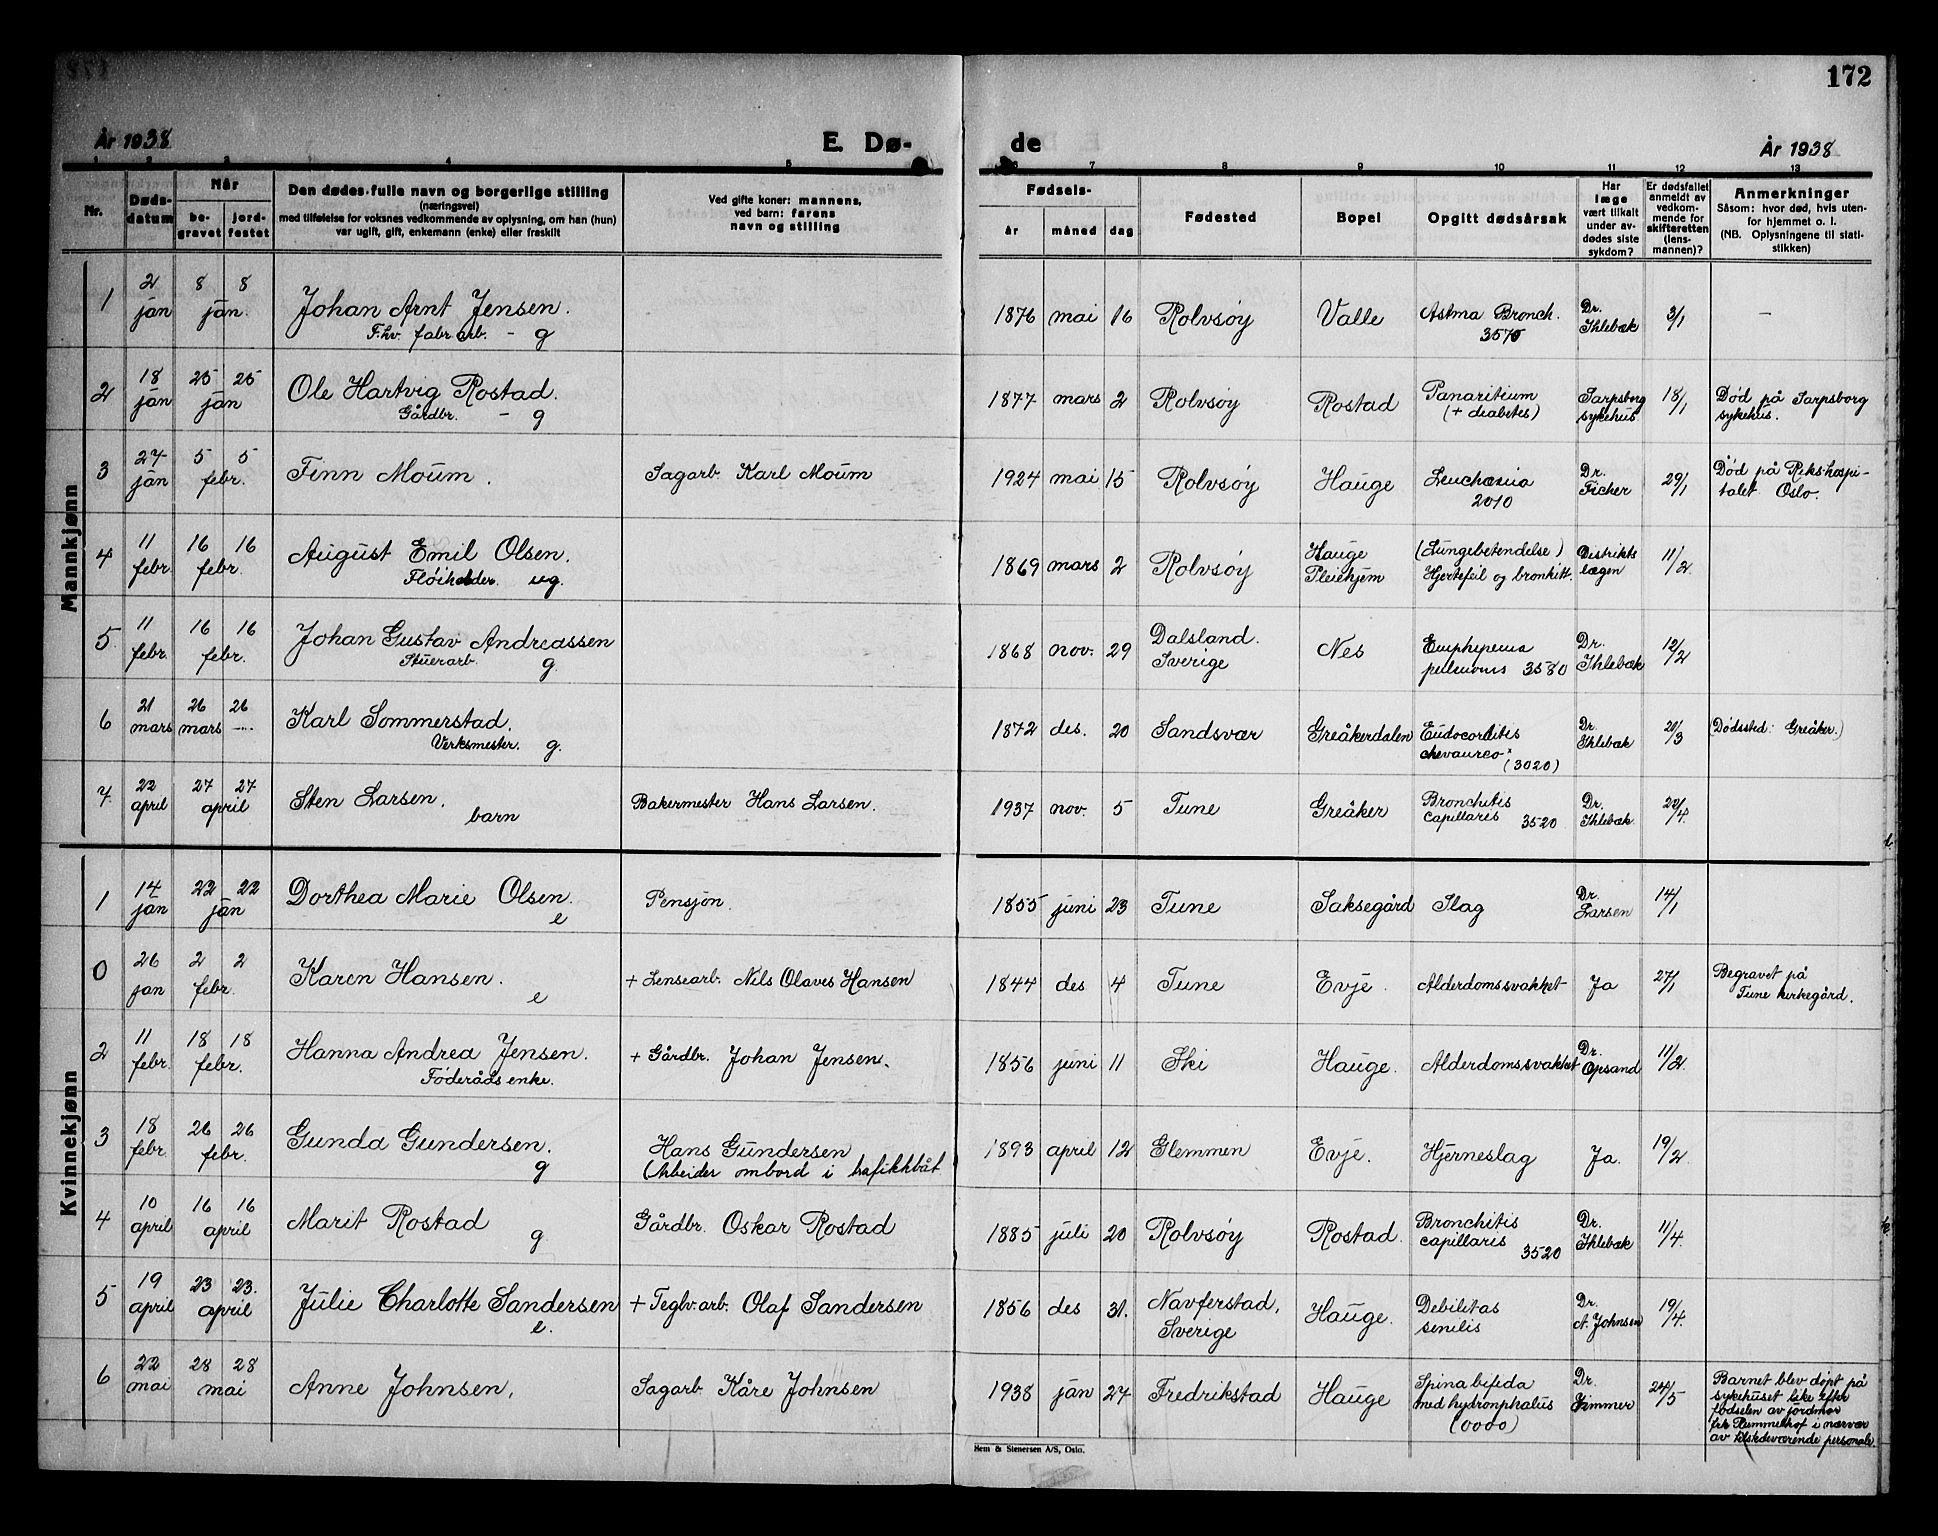 172
År 1938
E. Dø-
de
År 1938
1 2 3 4 5 6 7 8 9 10 11 12 13
Nr.
Døds-
datum
Når
be-
gravet
jord-
festet
Den dødes fulle navn og borgerlige stilling
(næringsvei)
med tilføielse for voksnes vedkommende av oplysning, om han (hun)
var ugift, gift, enkemann (enke) eller fraskilt
Ved gifte koner: mannens,
ved barn: farens
navn og stilling
Fødsels-
år måned dag
Fødested
Bopel
Opgitt dødsårsak
Har
læge
vært tilkalt
under av-
dødes siste
sykdom?
Er dødsfallet
anmeldt av
vedkom-
mende for
skifteretten
(lens-
mannen)?
Anmerkninger
Såsom: hvor død, hvis uten-
for hjemmet o. l.
(NB. Oplysningene til stati-
stikken)
Mannkjønn
1 2 jan 8 8 jan. Johan Arnt Jensen. 1876 mai 16 Rolvsøy Valle Astma Bronch. Dr. Ihlebæk 3/1 –
F.hv. fabr arb. – g 3575
2 18 jan 25 25 jan Ole Hartvig Rostad. 1877 mars 2 Rolvsøy Rostad Panaritium Sarpsborg sykehus 18/1 Død på Sarpsborg
Gårdbr. – g (+ diabetes) sykehus.
3 27 jan 5 5 febr. Finn Moum. Sagarb. Karl Moum 1924 mai 15 Rolvsøy Hauge Leuchæmia Dr. Ficher 29/1 Død på Rikshospi-
2010 talet Oslo.
4 11 febr. 16 16 febr. August Emil Olsen. 1869 mars 2 Rolvsøy Hauge Pleiehjem (Lungebetendelse) Distrikts lægen 11/2
ug. Hjertefeil og bronkitt.
5 11 febr. 16 16 febr. Johan Gustav Andreassen 1868 nov. 29 Dalsland. Sverige Nes Dr. Ihlebæk 12/2
Stuerarb. g. 3580
6 21 mars 26 mars 26 Karl Sommerstad. 1872 des. 20 Sandsvær Greåkerdalen Dr. Ihlebæk 21/3 (Dødssted: Greåker.)
Verksmester. g. (3020)
7. 22 april 27 27 april Sten Larsen. Bakermester Hans Larsen. 1937 nov. 5 Tune Greåker Bronchitis Dr. Ihlebæk 22/4.
barn capillaris 3520
Kvinnekjønn
1 14 jan 22 22 jan Dorthea Marie Olsen. Pensjon. 1855 juni 23 Tune Saksegård Slag Dr. Larsen 14/1
e
0 26 jan 2 2 febr. Karen Hansen. + Lensearb. Nils Olaves Hansen 1844 des 4 Tune Evje. Alderdomssvakket Ja 27/1 Begravet på
e Tune kirkegård.
2 11 febr. 18 18 febr. Hanna Andrea Jensen. + Gårdbr. Johan Jensen. 1856 juni 11 Ski Hauge. Alderdomssvakket Dr. Opsand 11/2
Føderåds enke.
3 18 febr. 26 26 febr. Gunda Gundersen. Hans Gundersen 1893 april 12 Glemmen Evje. Hjerneslag Ja. 19/2
g (Arbeider ombord i trafikkbåt
4 10 april 16 16 april Marit Rostad Gårdbr. Oskar Rostad 1885 juli 20 Rolvsøy Rostad. Bronchitis Dr. Ihlebæk 11/4.
g. capillaris 3520
5 19 april 23 23. april Julie Charlotte Sandersen + Teglv.arb. Olaf Sandersen 1856 des 31. Navferstad, Sverige Hauge. Debilitas Dr. A. Johnsen 19/4.
e. senilis
6 22 mai 28 28 mai Anne Johnsen. Sagarb. Kåre Johnsen 1938 jan 27 Fredrikstad Hauge Spina bifida Dr. Zimmer 24/5 Barnet blev døpt på
med hydronphalus sykehuset like efter
(0000) fødselen av jordmor
frk Plummelhof i nærvær
av tilstedeværende personale.
Hem & Stenersen A/S, Oslo.